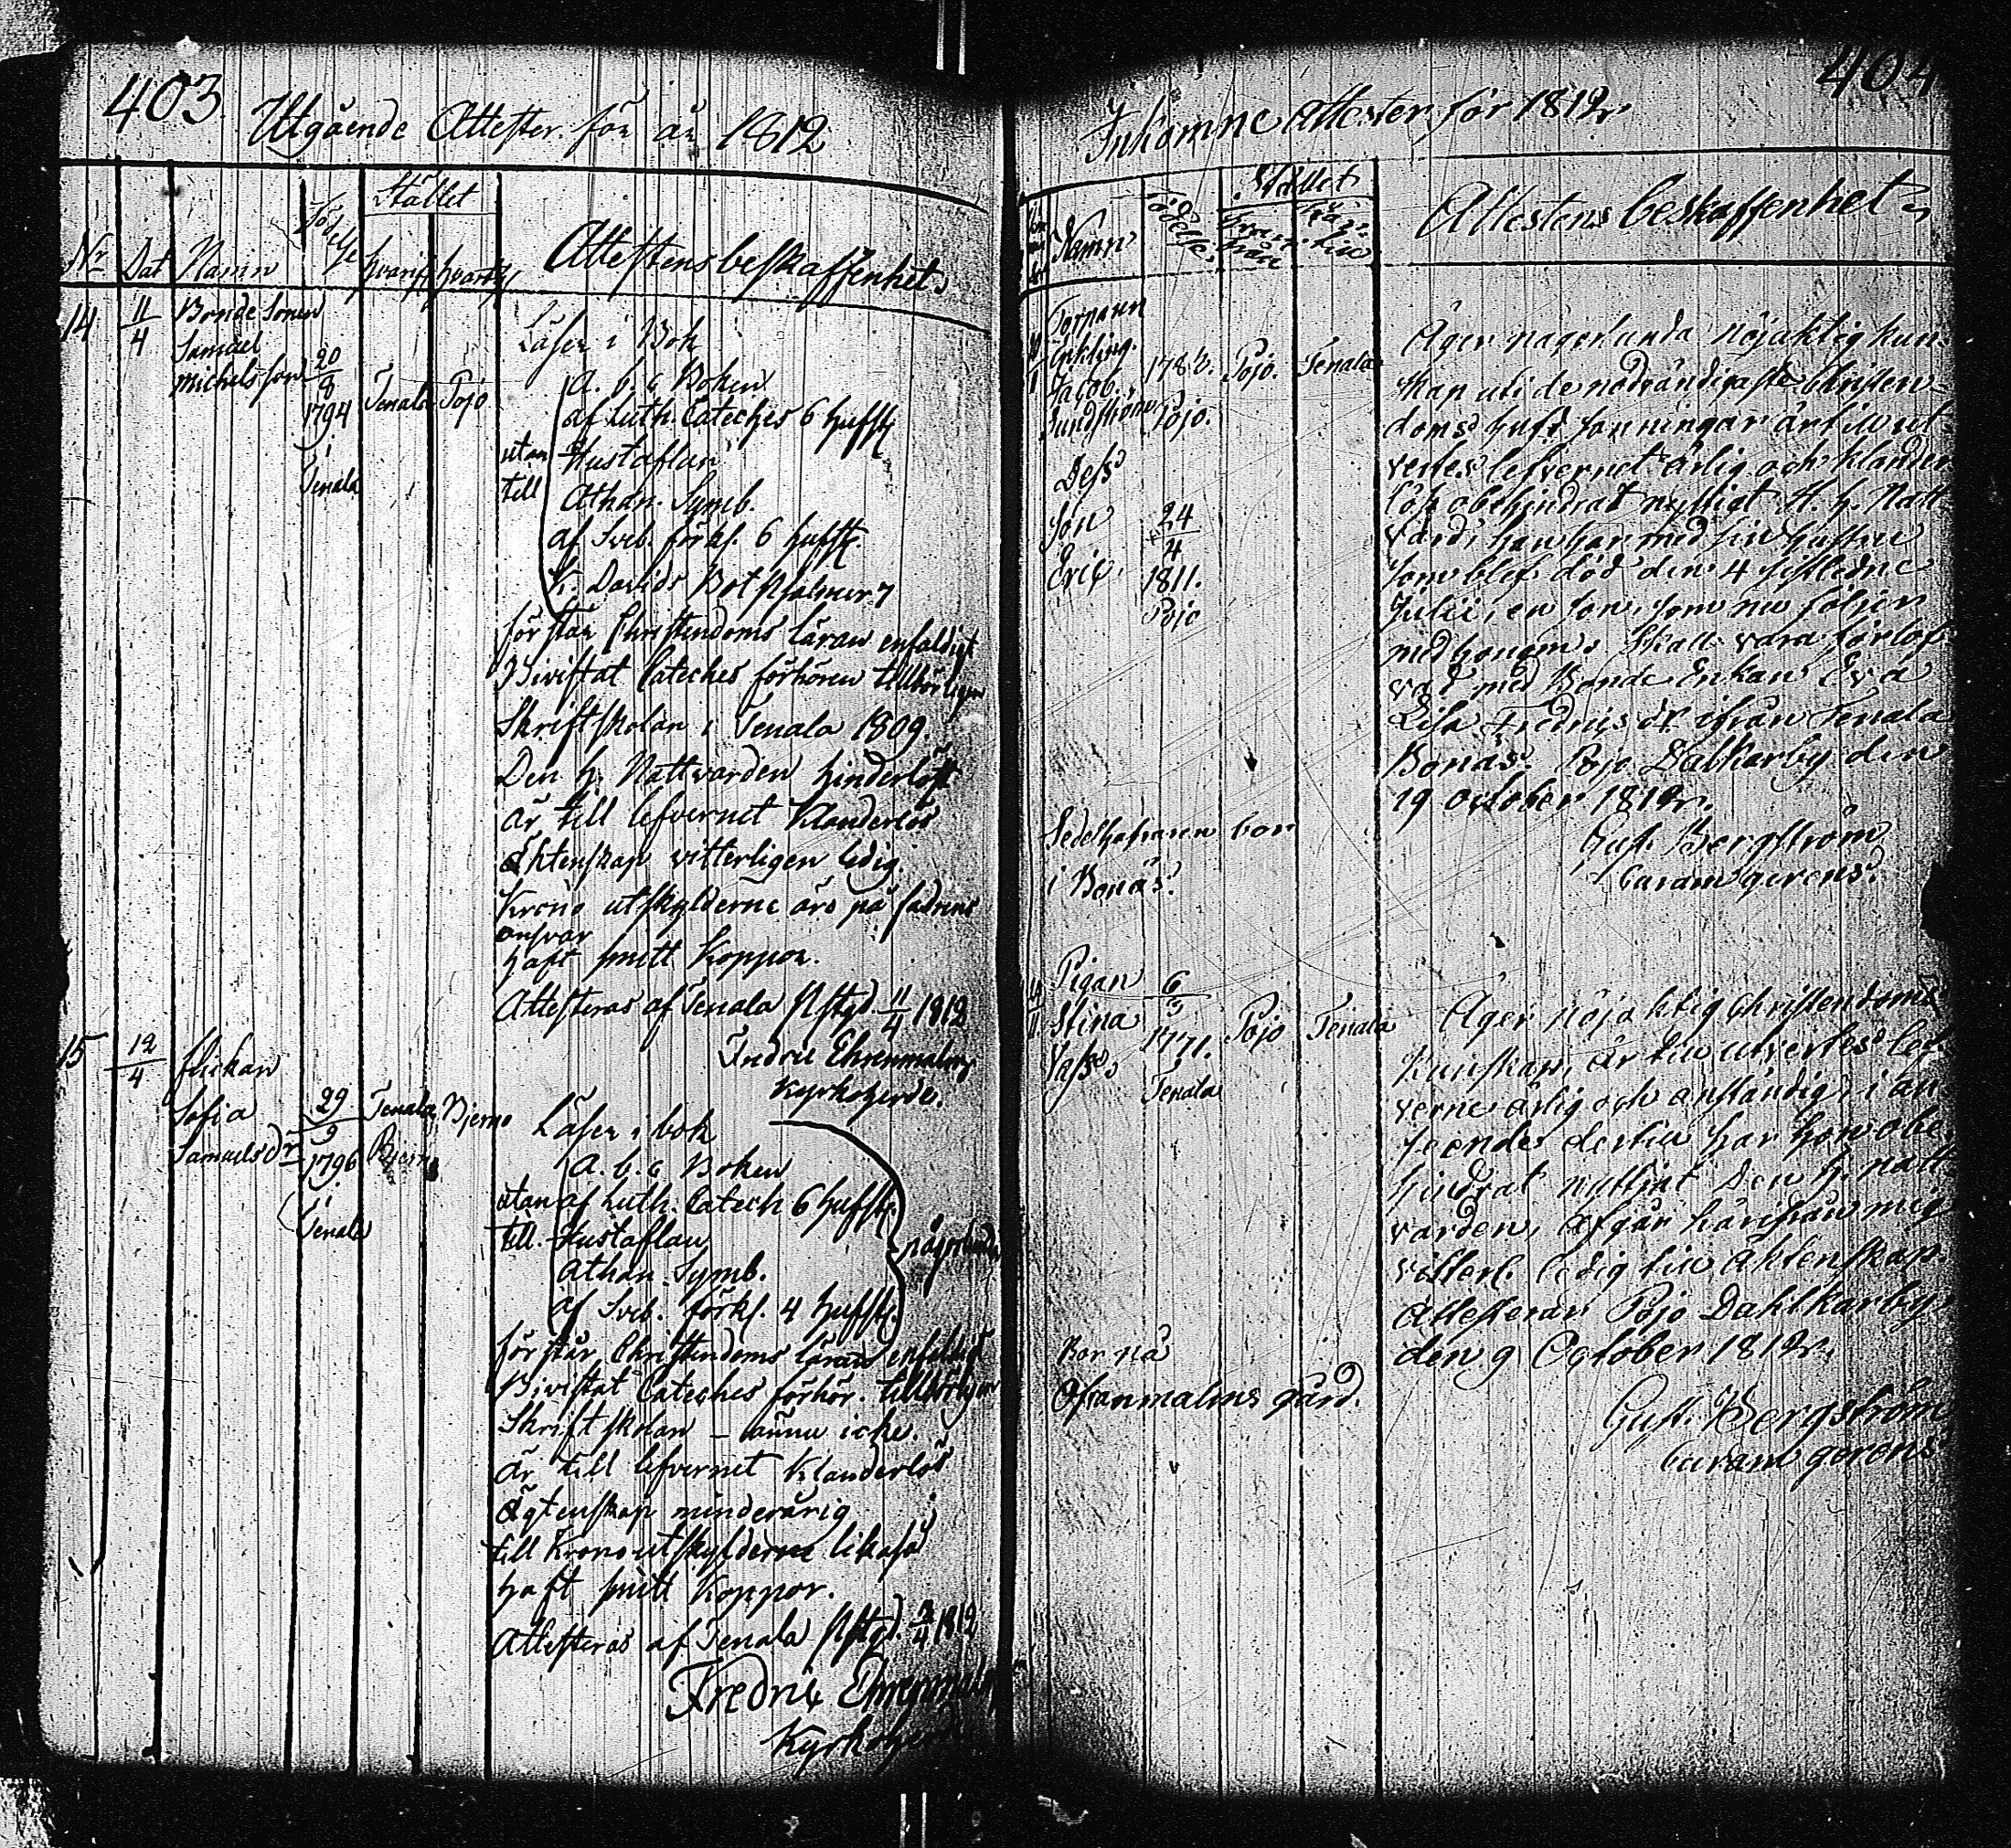 403
Utgående Attester för år 1812
Stället
Födelse
Nr Dat Namn hvarif hvart
Attestens beskaffenhet.
14 11/4 Bonde Sonen
Samuel
Michelsson 20/8
1794 Tenala Pojo
i
Tenala
Läser i Bok
A. b. c Boken
af Luth. Cateches 6 hufst
utan Hustaflan
till Athan. Symb.
af Sveb. förkl. 6 hufst.
K. Davids Bot Psalmer 7
förstår Christendoms läran enfaldigt
Bivistat Cateches förhören tillbörligen
Skriftskolan i Tenala 1809.
Den h. Nattvarden hinderlöst
är till lefvernet Klanderlös
Ektenskap vitterligen ledig.
Krono utskylderne äro på fadrens
ansvar
haft smitt Koppor.
Attesteras af Tenala Pstgd. 11/4 1812
Fredric Ehrenmalm
Kyrkoherde.
15 12/4 flickan
Sofia
Samuelsdr
29/9
1796
i
Tenala
Tenala Bjerno
Läser i bok
A. b. c Boken
utan af Luth. Catech 6 hufst.
till. Hustaflan
Athan. Symb.
af Sveb. förkl. 4 hufst.
någorlunda
förstår Christendoms läran enfaldigt
Bivistat Cateches förhör. tillbörligen
Skriftskolan – ännu icke.
är till lefvernet Klanderlös
Egtenskap minderårig
till Krono utskylderne likaså
haft smitt Koppor.
Attesteras af Tenala Pstgd. 1812
Fredric Ehrenmalm
Kyrkoherde
404
Inkomne Attester för 1812.
Stället
Namn Födelse Ifrån
Attestens beskaffenhet
Torparen
Enkling.
Jacob
Sundström
Pojo.
Pojo. Tenala
Dess
Son
Eric.
24/4
1811.
Pojo
Sedelhafvaren bor
i Bonäs.
Äger någorlunda nöjaktig kun-
skap uti de nödvändigaste Christen-
doms hufd sanningar är til ut-
vertes lefvernet ärlig och klander
lös obehindrat nyttjat H. h. Natt
vard, han har med sin hustru
som blef död den 4 sistledne
Julii, en son, som nu följer
med honom. Skall vara förlof
vad med Bonde Enkan Eva
Lisa Fredricsdr. ifrån Tenala
Bonäs. Pojo Dalkarby den
19 october 1812.
Gust. Bergström
Curam gerens.
Pigan
Stina
6/3
1771.
Tenala
Pojo Tenala
Bor på
Ofvanmalms gård.
Äger nöjaktig Christendoms
Kunskap, är till utvertes lef
verne ärlig och anständig, i an
seende dertill har hon obe
hindrat nyttjat Den h. natt
varden, afgår härifrån mig
vitterl. ledig till äktenskap.
Attesterar Pojo Dahlkarby
den 9 October 1812.
Gust. Bergström
Curam gerens